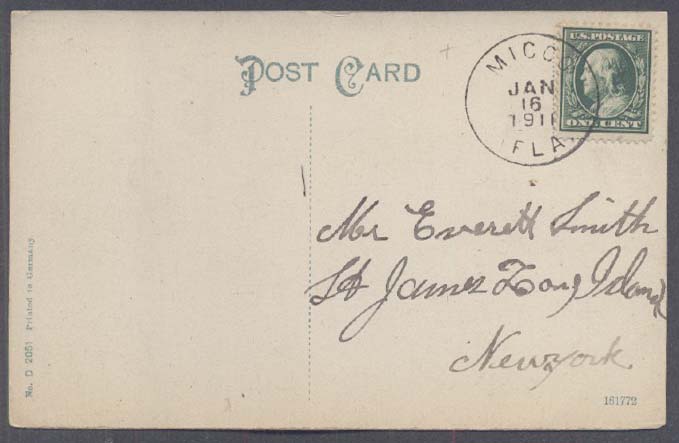 POST CARD
MICCO
JAN
16
1911
FLA.
U.S. POSTAGE
ONE CENT
Mr Everett Smith
St James Long Island
Newyork
No. D 2051 Printed in Germany
161772